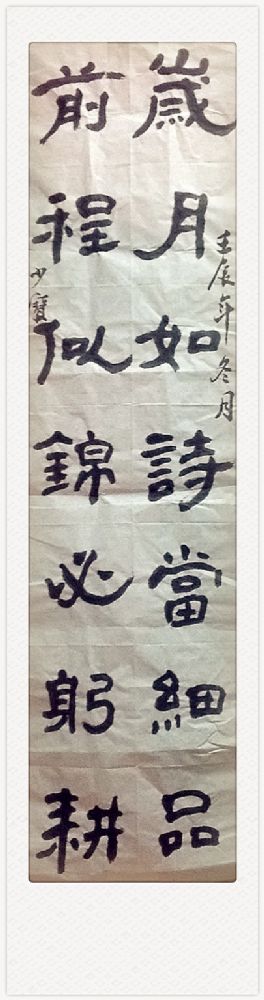 壬辰年冬月
歲月如詩當細品
前程似錦必躬耕
少寶